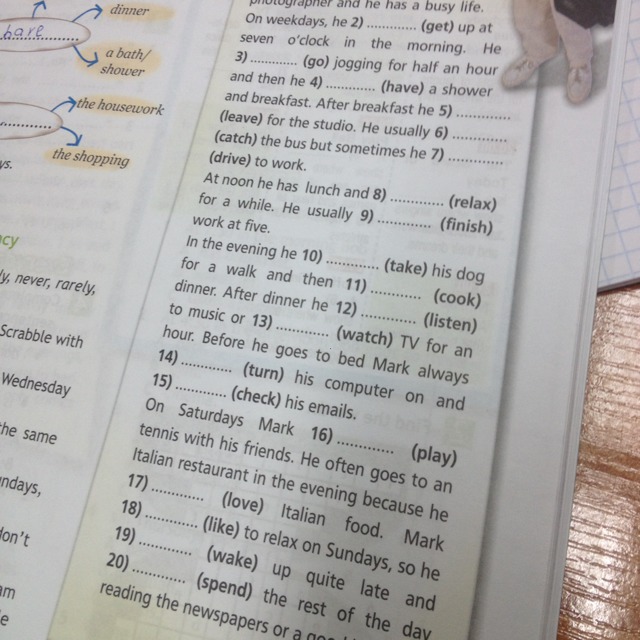 dinner
have
a bath/
shower
the housework
the shopping
ly, never, rarely,
Scrabble with
Wednesday
the same
photographer and he has a busy life.
On weekdays, he 2) ............ (get) up at
seven o'clock in the morning. He
3) ............ (go) jogging for half an hour
and then he 4) ............ (have) a shower
and breakfast. After breakfast he 5) ............
(leave) for the studio. He usually 6) ............
(catch) the bus but sometimes he 7) ............
(drive) to work.
At noon he has lunch and 8) ............ (relax)
for a while. He usually 9) ............ (finish)
work at five.
In the evening he 10) ............ (take) his dog
for a walk and then 11) ............ (cook)
dinner. After dinner he 12) ............ (listen)
to music or 13) ............ (watch) TV for an
hour. Before he goes to bed Mark always
14) ............ (turn) his computer on and
15) ............ (check) his emails.
On Saturdays Mark 16) ............ (play)
tennis with his friends. He often goes to an
Italian restaurant in the evening because he
17) ............ (love) Italian food. Mark
18) ............ (like) to relax on Sundays, so he
19) ............ (wake) up quite late and
20) ............ (spend) the rest of the day
reading the newspapers or a